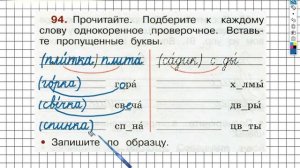 94. Прочитайте. Подберите к каждому
слову однокоренное проверочное. Вставь-
те пропущенные буквы.
(пли́тка) плита́ (са́дик) с ды́
(го́рка) гора́ х_лмы́
(све́чка) свеча́ дв_ры́
(спи́нка) сп_на́ цв_ты́
• Запишите по образцу.